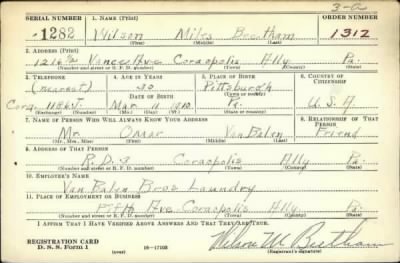 3-a
SERIAL NUMBER 1. NAME (Print) ORDER NUMBER
1282 Wilson Miles Beetham 1312
(First) (Middle) (Last)
2. ADDRESS (Print)
1216½ Vance Ave Coraopolis Ally Pa.
(Number and street or R. F. D. number) (Town) (County) (State)
3. TELEPHONE 4. AGE IN YEARS 5. PLACE OF BIRTH 6. COUNTRY OF CITIZENSHIP
(nearest) 30 Pittsburgh
DATE OF BIRTH (Town or county)
Cora. 1186J. Mar 11 1910 Pa. U.S.A.
(Exchange) (Number) (Mo.) (Day) (Yr.) (State or country)
7. NAME OF PERSON WHO WILL ALWAYS KNOW YOUR ADDRESS 8. RELATIONSHIP OF THAT PERSON
Mr. Omar Van Balen Friend
(Mr., Mrs., Miss) (First) (Middle) (Last)
9. ADDRESS OF THAT PERSON
R.D. Coraopolis Ally Pa.
(Number and street or R. F. D. number) (Town) (County) (State)
10. EMPLOYER'S NAME
Van Balen Bros Laundry
11. PLACE OF EMPLOYMENT OR BUSINESS
Fifth Ave. Coraopolis Ally Pa.
(Number and street or R. F. D. number) (Town) (County) (State)
I AFFIRM THAT I HAVE VERIFIED ABOVE ANSWERS AND THAT THEY ARE TRUE.
REGISTRATION CARD
D. S. S. Form 1 (over) 16—17105 Wilson M Beetham
(Registrant's signature)